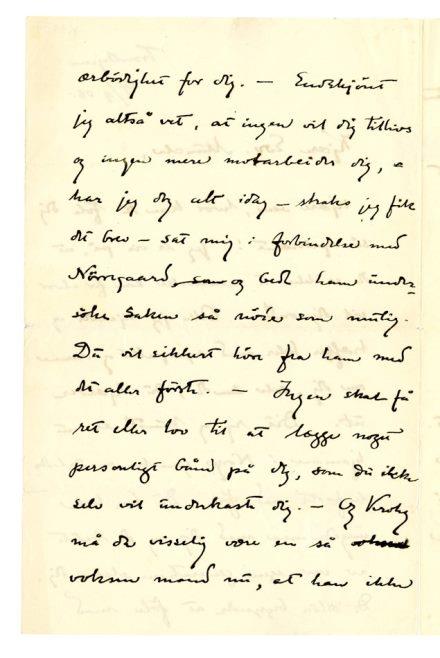 ærbödighet for dig. — Endskjönt
jeg altså vet, at ingen vil dig tillivs
og ingen mere motarbeider dig, –
har jeg dog alt idag – straks jeg fik
dit brev – sat mig i forbindelse med
Nörregaard, som og bedt ham ünder-
söke saken så nöie som mulig.
Dü vil sikkert höre fra ham med
det aller förste. – Ingen skal få
ret eller lov til at lægge noget
personligt bånd på dig, som dü ikke
selv vil ünderkaste dig. – Og Krohg
må da visselig være en så
voksen mand nü, at han ikke